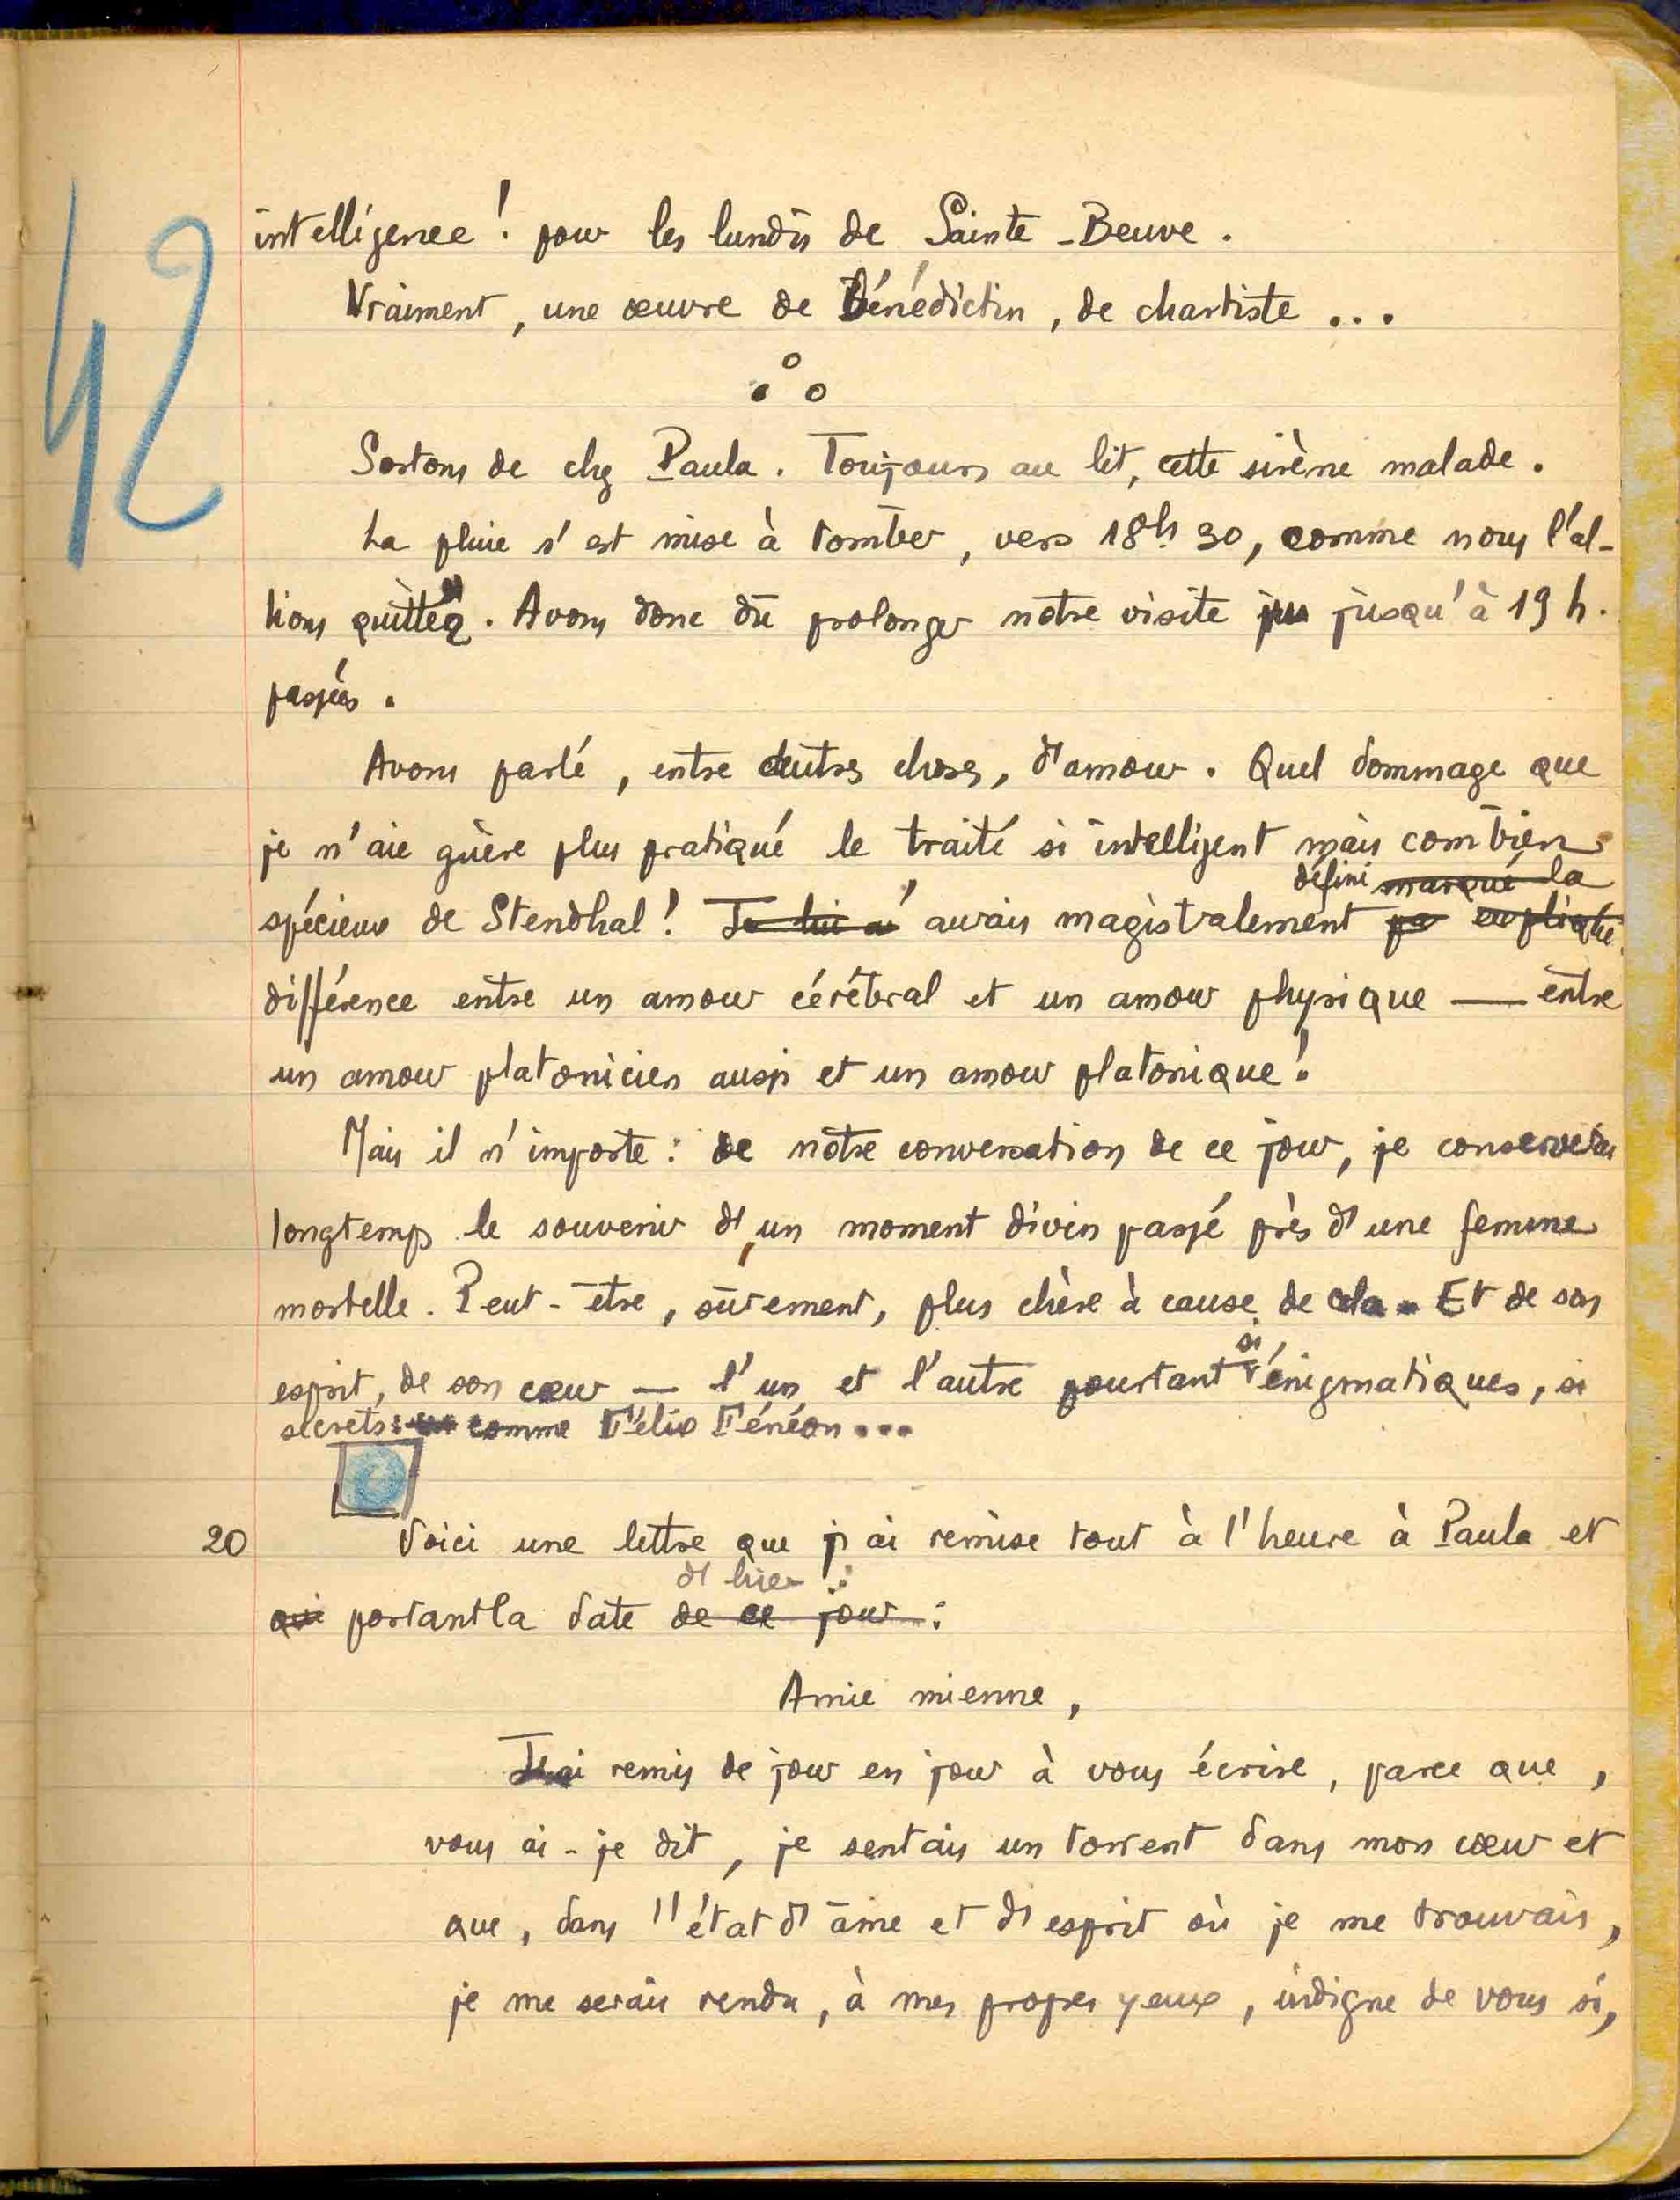 42
intelligence ! pour les lundis de Sainte-Beuve.
Vraiment, une œuvre de Bénédictin, de chartiste ...
Sortons de chez Paula. Toujours au lit, cette sirène malade.
La pluie s'est mise à tomber, vers 18h 30, comme nous l'al-
lions quitter. Avons donc dû prolonger notre visite jus jusqu'à 19 h.
passées.
Avons parlé, entre autres choses, d'amour. Quel dommage que
je n'aie guère plus pratiqué le traité si intelligent mais combien
défini marqué la
spécieux de Stendhal ! Je lui ai aurais magistralement expliqué
différence entre un amour cérébral et un amour physique — entre
un amour platonicien aussi et un amour platonique !
Mais il n'importe : de notre conversation de ce jour, je conserverai
longtemps le souvenir d'un moment divin passé près d'une femme
mortelle. Peut-être, sûrement, plus chère à cause de cela. Et de son
si
esprit, de son cœur — l'un et l'autre pourtant énigmatiques, si
secrets : comme Félix Fénéon ...
20 Voici une lettre que j'ai remise tout à l'heure à Paula et
d'hier :
qui portant la date de ce jour :
Amie mienne,
J'ai remis de jour en jour à vous écrire, parce que,
vous ai-je dit, je sentais un torrent dans mon cœur et
que, dans l'état d'âme et d'esprit où je me trouvais,
je me serais rendu, à mes propres yeux, indigne de vous si,